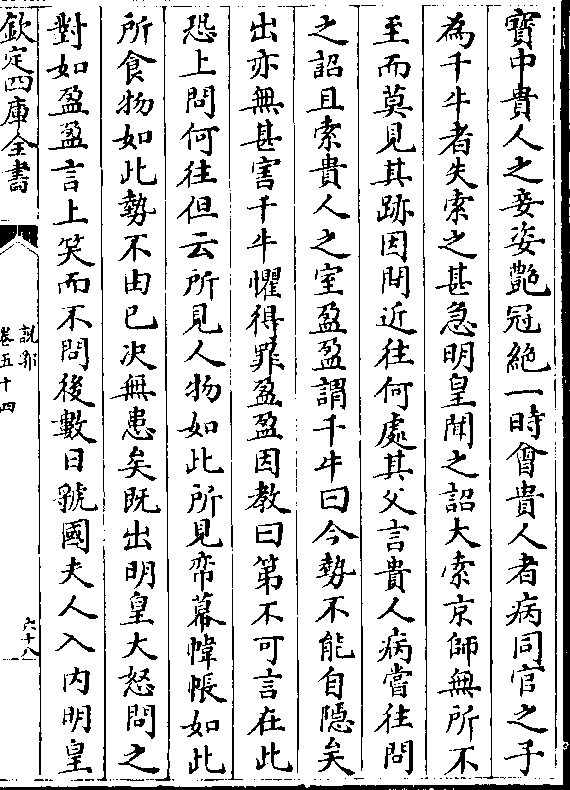 寳中貴人之妾姿艶冠絶一時㑹貴人者病同官之子
為千牛者失索之甚急明皇聞之詔大索京師無所不
至而莫見其跡因問近往何處其父言貴人病嘗往問
之詔且索貴人之室盈盈謂千牛曰今勢不能自隠矣
出亦無甚害千牛懼得罪盈盈因教曰第不可言在此
恐上問何往但云所見人物如此所見帟幕幃帳如此
所食物如此勢不由已决無患矣既出明皇大怒問之
對如盈盈言上笑而不問後數日虢國夫人入内明皇
欽定四庫全書
說郛
卷五十四
六十八